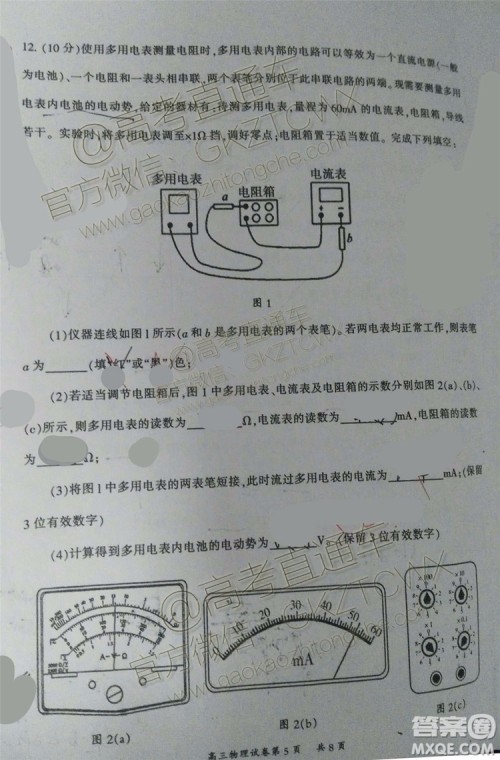 12. (10 分)使用多用电表测量电阻时,多用电表内部的电路可以等效为一个直流电源(一般
为电池)、一个电阻和一表头相串联,两个表笔分别位于此串联电路的两端。现需要测量多用
电表内电池的电动势,给定的器材有:待测多用电表,量程为60mA的电流表,电阻箱,导线
若干。实验时,将多用电表调至×1Ω挡,调好零点,电阻箱置于适当数值。完成下列填空:
多用电表
a 电阻箱
电流表
b
图1
(1)仪器连线如图1所示(a和b是多用电表的两个表笔)。若两电表均正常工作,则表笔
a为____(填“红”或“黑”)色;
(2)若适当调节电阻箱后,图1中多用电表、电流表及电阻箱的示数分别如图2(a)、(b)、
(c)所示,则多用电表的读数为____Ω,电流表的读数为____mA,电阻箱的读数
为____Ω;
(3)将图1中多用电表的两表笔短接,此时流过多用电表的电流为____mA;(保留
3位有效数字)
(4)计算得到多用电表内电池的电动势为____V。(保留3位有效数字)
A-V-Ω
0 10 20 30 40 50 60
mA
×100 ×10
×1 ×0.1
图2(a)
图2(b)
图2(c)
高三物理试卷第5页 共8页
@高考直通车
官方微信: GKZTCWX
www.gaokaozhitongche.com
答案圈
MXQE.COM